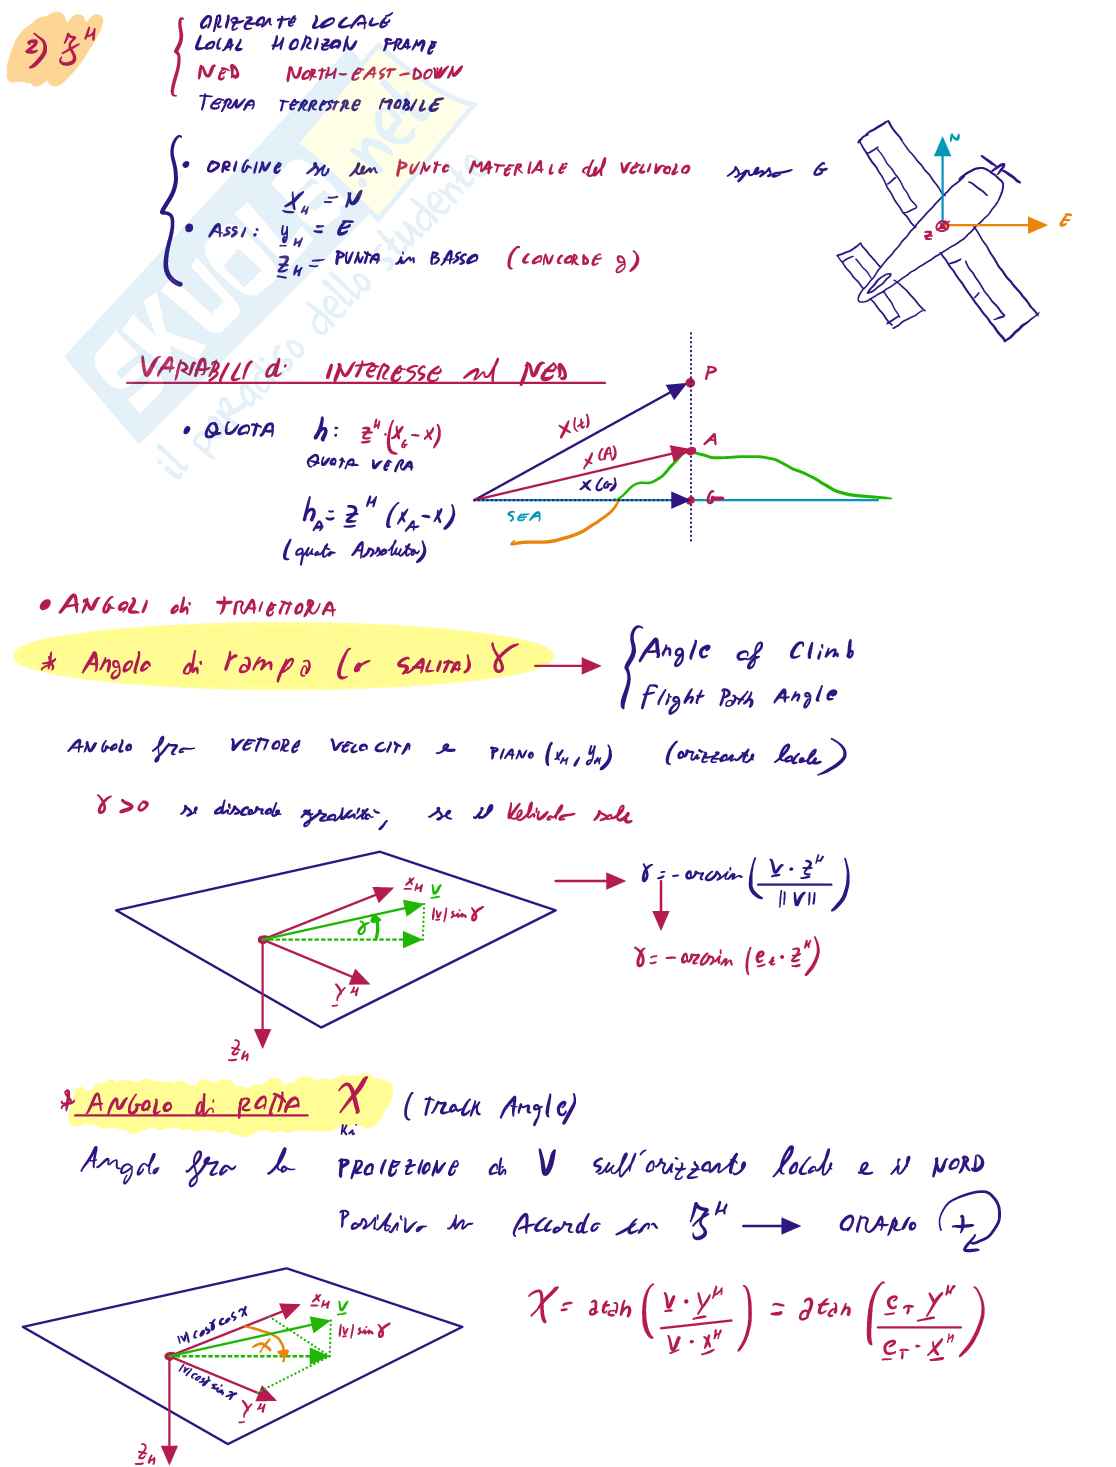 2) ℱᴴ
ORIZZONTE LOCALE
LOCAL HORIZON FRAME
NED NORTH-EAST-DOWN
TERNA TERRESTRE MOBILE
• ORIGINE su un PUNTO MATERIALE del VELIVOLO spesso G
• ASSI: x_H = N
y_H = E
z_H = PUNTA in BASSO (CONCORDE g)
N
E
Z
VARIABILI di INTERESSE sul NED
• QUOTA h: zᴴ·(x_G-x)
QUOTA VERA
h_A = zᴴ (x_A-x)
(quota Assoluta)
P
X(t)
A
X(A)
X(G)
G
SEA
• ANGOLI di TRAIETTORIA
* Angolo di rampa (o SALITA) γ
Angle of Climb
Flight Path Angle
ANGOLO fra VETTORE VELOCITÀ e PIANO (x_H, y_H) (orizzonte locale)
γ>0 se discorde gravità, se il Velivolo sale
x_H V
|V| sin γ
γ
Yᴴ
z_H
γ = - arcsin (V · zᴴ / ||V||)
γ = - arcsin (e_t · zᴴ)
* ANGOLO di ROTTA χ (Track Angle)
Ki
Angolo fra la PROIEZIONE di V sull'orizzonte locale e il NORD
Positivo in Accordo con ℱᴴ → ORARIO +
|V| cosγ cosχ
x_H V
|V| sin γ
χ
|V| cosγ sinχ
Yᴴ
z_H
χ = atan (V · Yᴴ / V · xᴴ) = atan (e_T Yᴴ / e_T · xᴴ)
SKUOLA.net
il paradiso dello studente